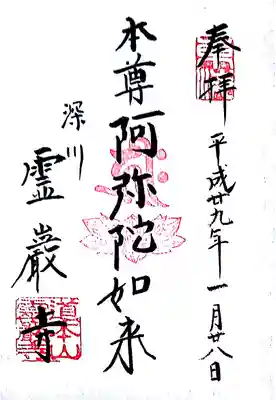 奉拝
平成廿九年一月廿八日
本尊阿弥陀如来
深川
霊巖寺